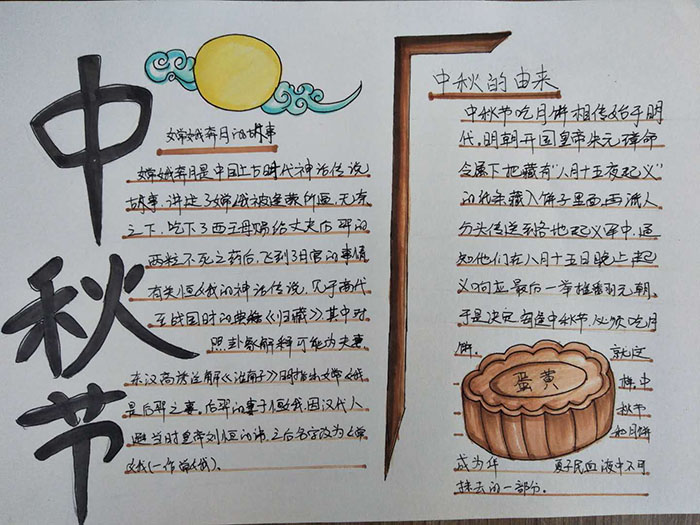 中秋节
嫦娥奔月的故事
嫦娥奔月是中国上古时代神话传说
故事,讲述了嫦娥被逢蒙所逼,无奈
之下,吃下了西王母赐给丈夫后羿的
两粒不死之药后,飞到了月宫的事情
有关嫦娥的神话传说,
至战国时的典籍《归藏》其中对
卦象解释可能为夫妻
东汉高诱注解《淮南子》明指出嫦娥
是后羿之妻,后羿的妻子恒娥,因汉代人
避当时皇帝刘恒的讳,之后名字改为嫦
娥(一作常娥).
中秋的由来
中秋节吃月饼相传始于明
代,明朝开国皇帝朱元璋命
令属下把藏有“八月十五夜起义”
的纸条藏入饼子里面,再派人
分头传送到各地起义军中,通
知他们在八月十五日晚上起
义响应,最后一举推翻元朝.
于是决定
中秋节必须吃月
饼. 就这
样,中
秋节
和月饼
蛋黄
成为华 夏子民血液中不可
抹去的一部分.